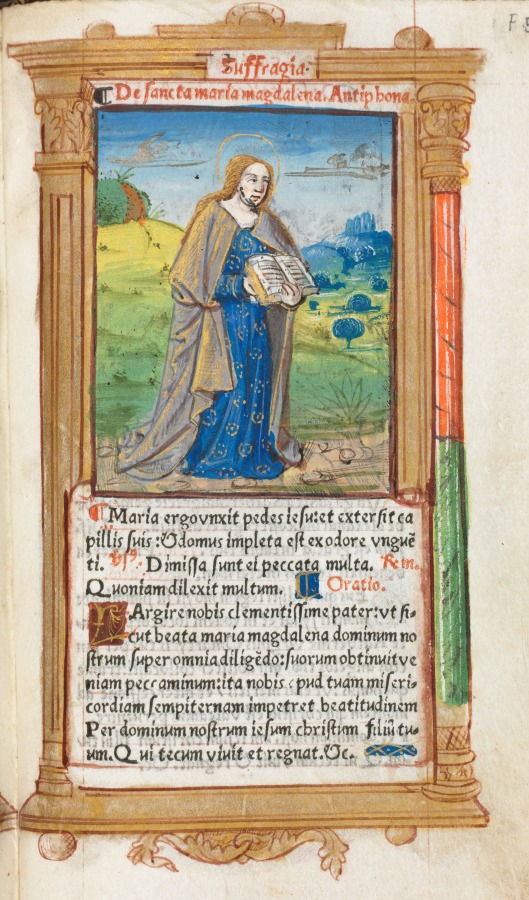 Suffragia.
De sancta maria magdalena. Antiphona.
Maria ergo vnxit pedes iesu: et extersit ca
pillis suis: & domus impleta est ex odore vnguē
ti. Dimissa sunt ei peccata multa.
Quoniam dilexit multum. Oratio.
LArgire nobis clementissime pater: vt si-
cut beata maria magdalena dominum no
strum super omnia diligēdo: suorum obtinuit ve
niam peccaminum: ita nobis apud tuam miseri-
cordiam sempiternam impetret beatitudinem
Per dominum nostrum iesum christum filiū tu-
um. Qui tecum viuit et regnat. &c.